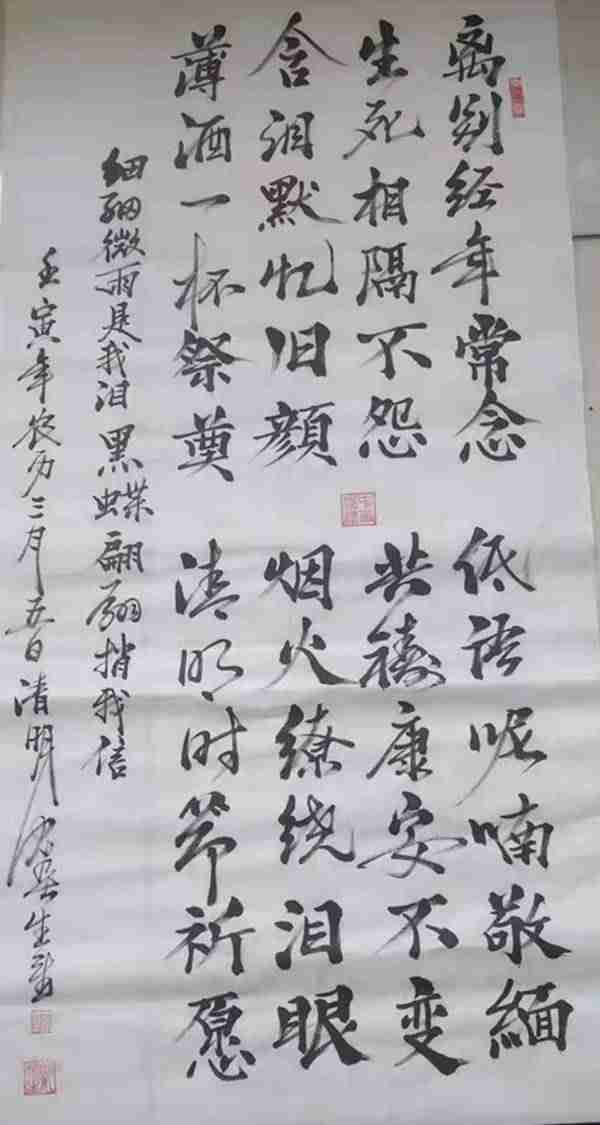 离别经年常念
生死相隔不怨
含泪默忆旧颜
薄酒一杯祭奠
低语呢喃敬缅
共祷康安不变
烟火缭绕泪眼
清明时节祈愿
细细微雨是我泪 黑蝶翩翩捎我信
壬寅年农历三月五日清明